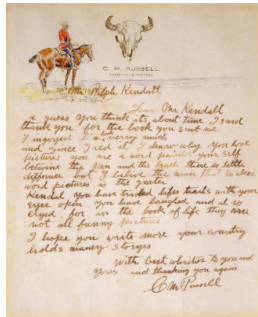 C. M. RUSSELL
GREAT FALLS, MONTANA
Mr Ralph Kendall
Dear Mr Kendall
I guess you think its about time I said
thank you for the book you sent me
I injoyed it a verry much
and since I red it I know why you love
pictures you are a word painter your self
betwine the pen and the brush there is little
diffornce but I belive the man that makes
word pictures is the greater
Kendal you have traded lifes trails with your
eyes open you have laughed and al so
cryed for in the book of life they are
not all funny pictures
I hope you write more your country
holds maney storyes
With best whishes to you and
yors and thanking you again
C M Russell